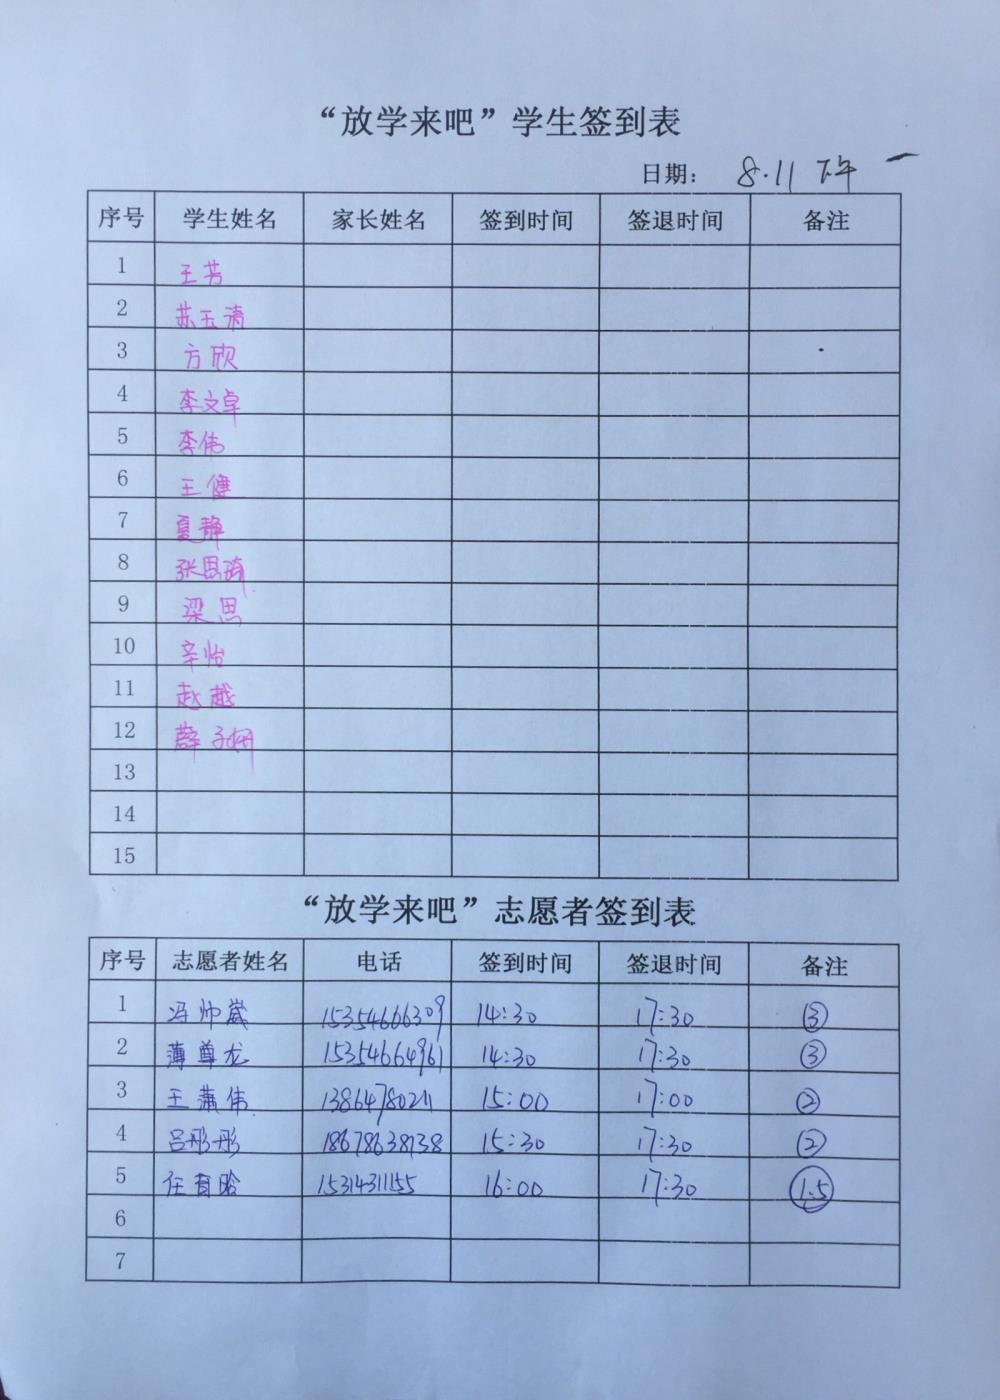 “放学来吧”学生签到表
日期： 8.11 下午
序号 学生姓名 家长姓名 签到时间 签退时间 备注
1 王芳
2 苏玉清
3 方欣
4 李文卓
5 李伟
6 王健
7 夏静
8 张思琦
9 梁思
10 辛怡
11 赵越
12 薛子娴
13
14
15
“放学来吧”志愿者签到表
序号 志愿者姓名 电话 签到时间 签退时间 备注
1 冯帅崴 15354666309 14:30 17:30 ③
2 薄尊龙 15354664961 14:30 17:30 ③
3 王潇伟 15:00 17:00 ②
4 吕彤彤 18678638738 15:30 17:30 ②
5 任 15314311155 16:00 17:30 1.5
6
7